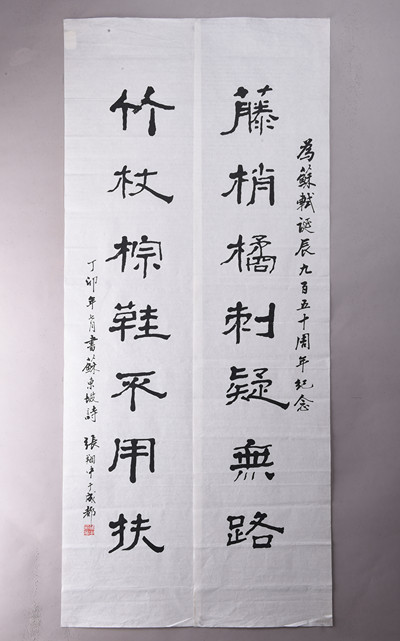 為蘇軾誕辰九百五十周年紀念
藤梢橘刺疑無路
竹杖棕鞋不用扶
丁卯年七月書蘇東坡詩 張翔中于成都